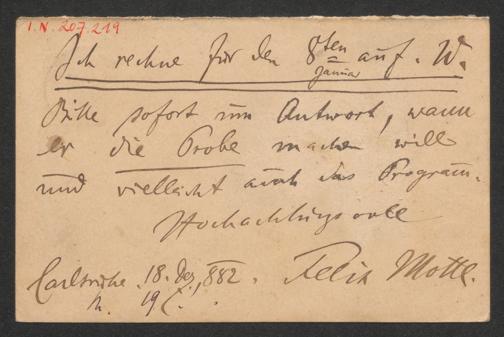 I.N. 207.219
Ich rechne für den 8ten auf. W.
Januar
Bitte sofort um Antwort, wann
er die Probe machen will
und vielleicht auch das Program̅.
Hochachtungsvoll
Carlsruhe 18. Dez. 882. Felix Mottl.
19